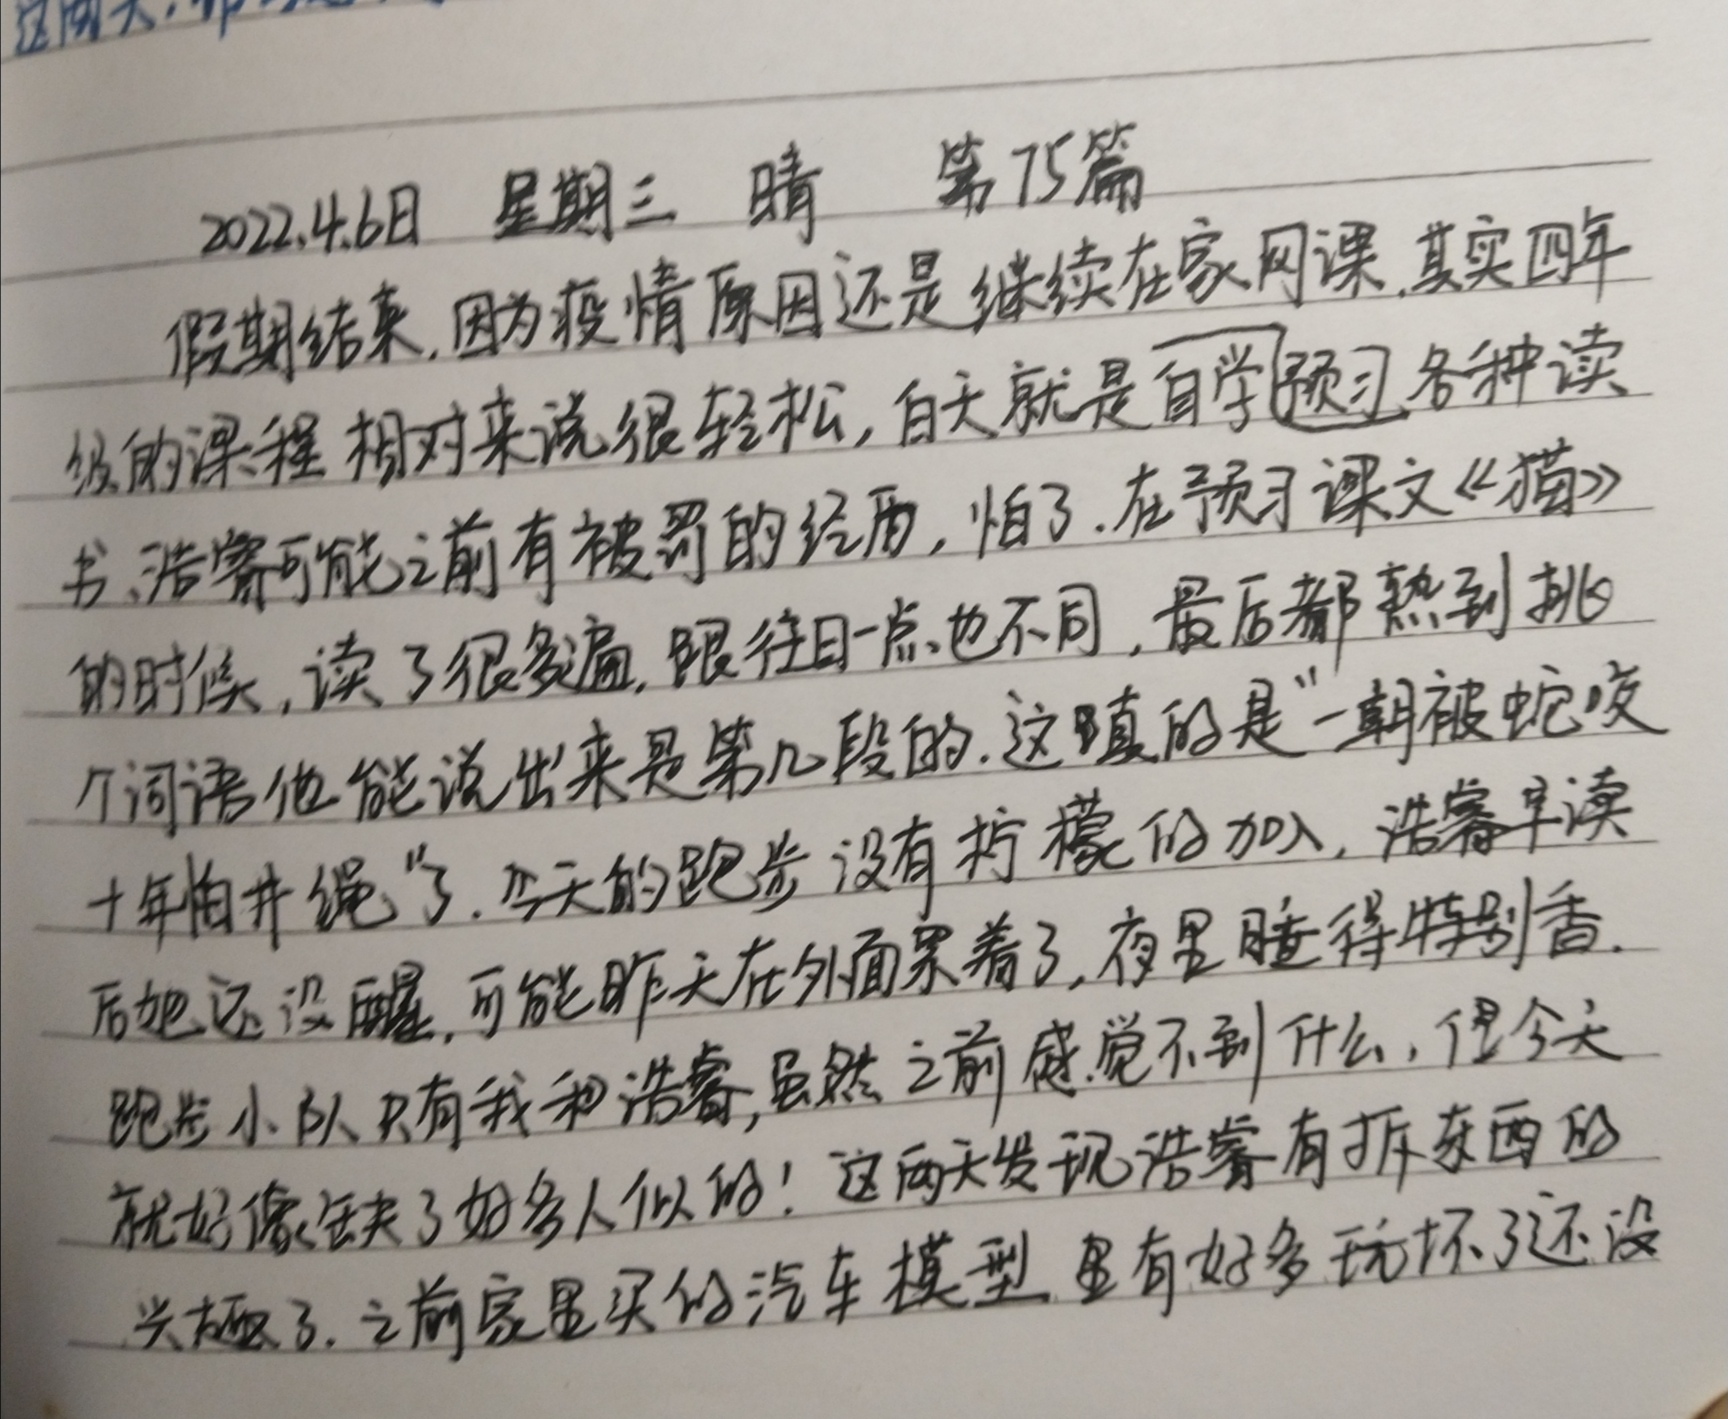 2022.4.6日 星期三 晴 第75篇
假期结束,因为疫情原因还是继续在家网课.其实四年
级的课程相对来说很轻松,白天就是自学预习.各种读
书.浩睿可能之前有被罚的经历,怕了.在预习课文《猫》
的时候,读了很多遍.跟往日一点也不同,最后都熟到挑
个词语他能说出来是第几段的.这真的是“一朝被蛇咬
十年怕井绳”了.今天的跑步没有柠檬的加入,浩睿早读
后她还没醒.可能昨天在外面累着了,夜里睡得特别香.
跑步小队只有我和浩睿,虽然之前感觉不到什么,但今天
就好像缺失了好多人似的!这两天发现浩睿有拆东西的
兴趣了.之前家里买的汽车模型里有好多玩坏了还没